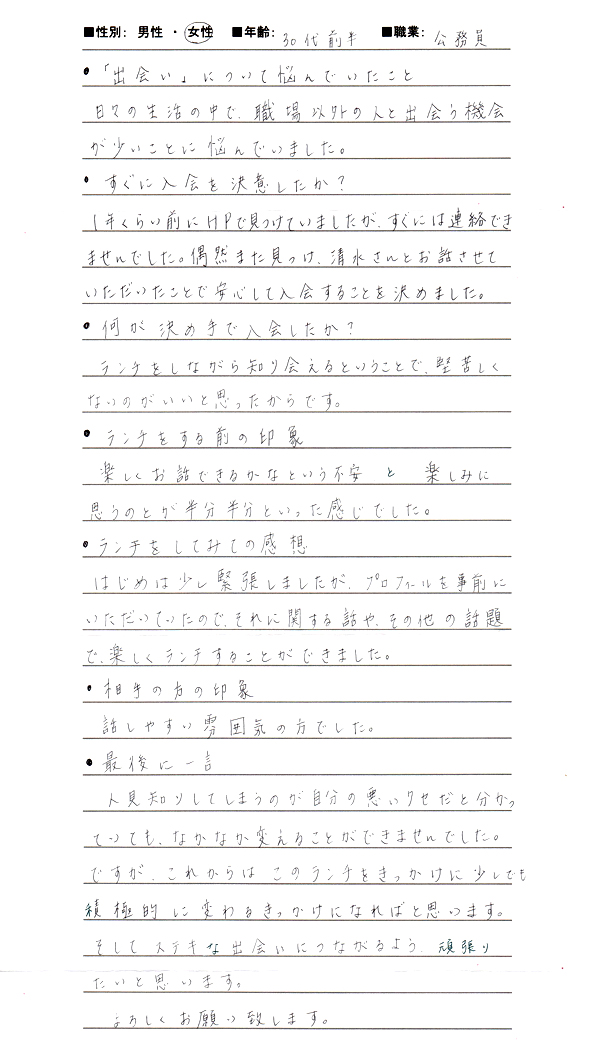 ■性別: 男性 ・ 女性 ■年齢: 30代前半 ■職業: 公務員
• 「出会い」について悩んでいたこと
日々の生活の中で、職場以外の人と出会う機会
が少いことに悩んでいました。
• すぐに入会を決意したか？
1年くらい前にHPで見つけていましたが、すぐには連絡でき
ませんでした。偶然また見つけ、清水さんとお話させて
いただいたことで安心して入会することを決めました。
• 何が決め手で入会したか？
ランチをしながら知り会えるということで、堅苦しく
ないのがいいと思ったからです。
• ランチをする前の印象
楽しくお話できるかなという不安と 楽しみに
思うのとが半分半分といった感じでした。
• ランチをしてみての感想
はじめは少し緊張しましたが、プロフィールを事前に
いただいていたので、それに関する話や、その他の話題
で、楽しくランチすることができました。
• 相手の方の印象
話しやすい雰囲気の方でした。
• 最後に一言
人見知りしてしまうのが自分の悪いクセだと分かっ
ていても、なかなか変えることができませんでした。
ですが、これからは このランチをきっかけに少しでも
積極的に変わるきっかけになればと思います。
そしてステキな出会いにつながるよう、頑張り
たいと思います。
よろしくお願い致します。